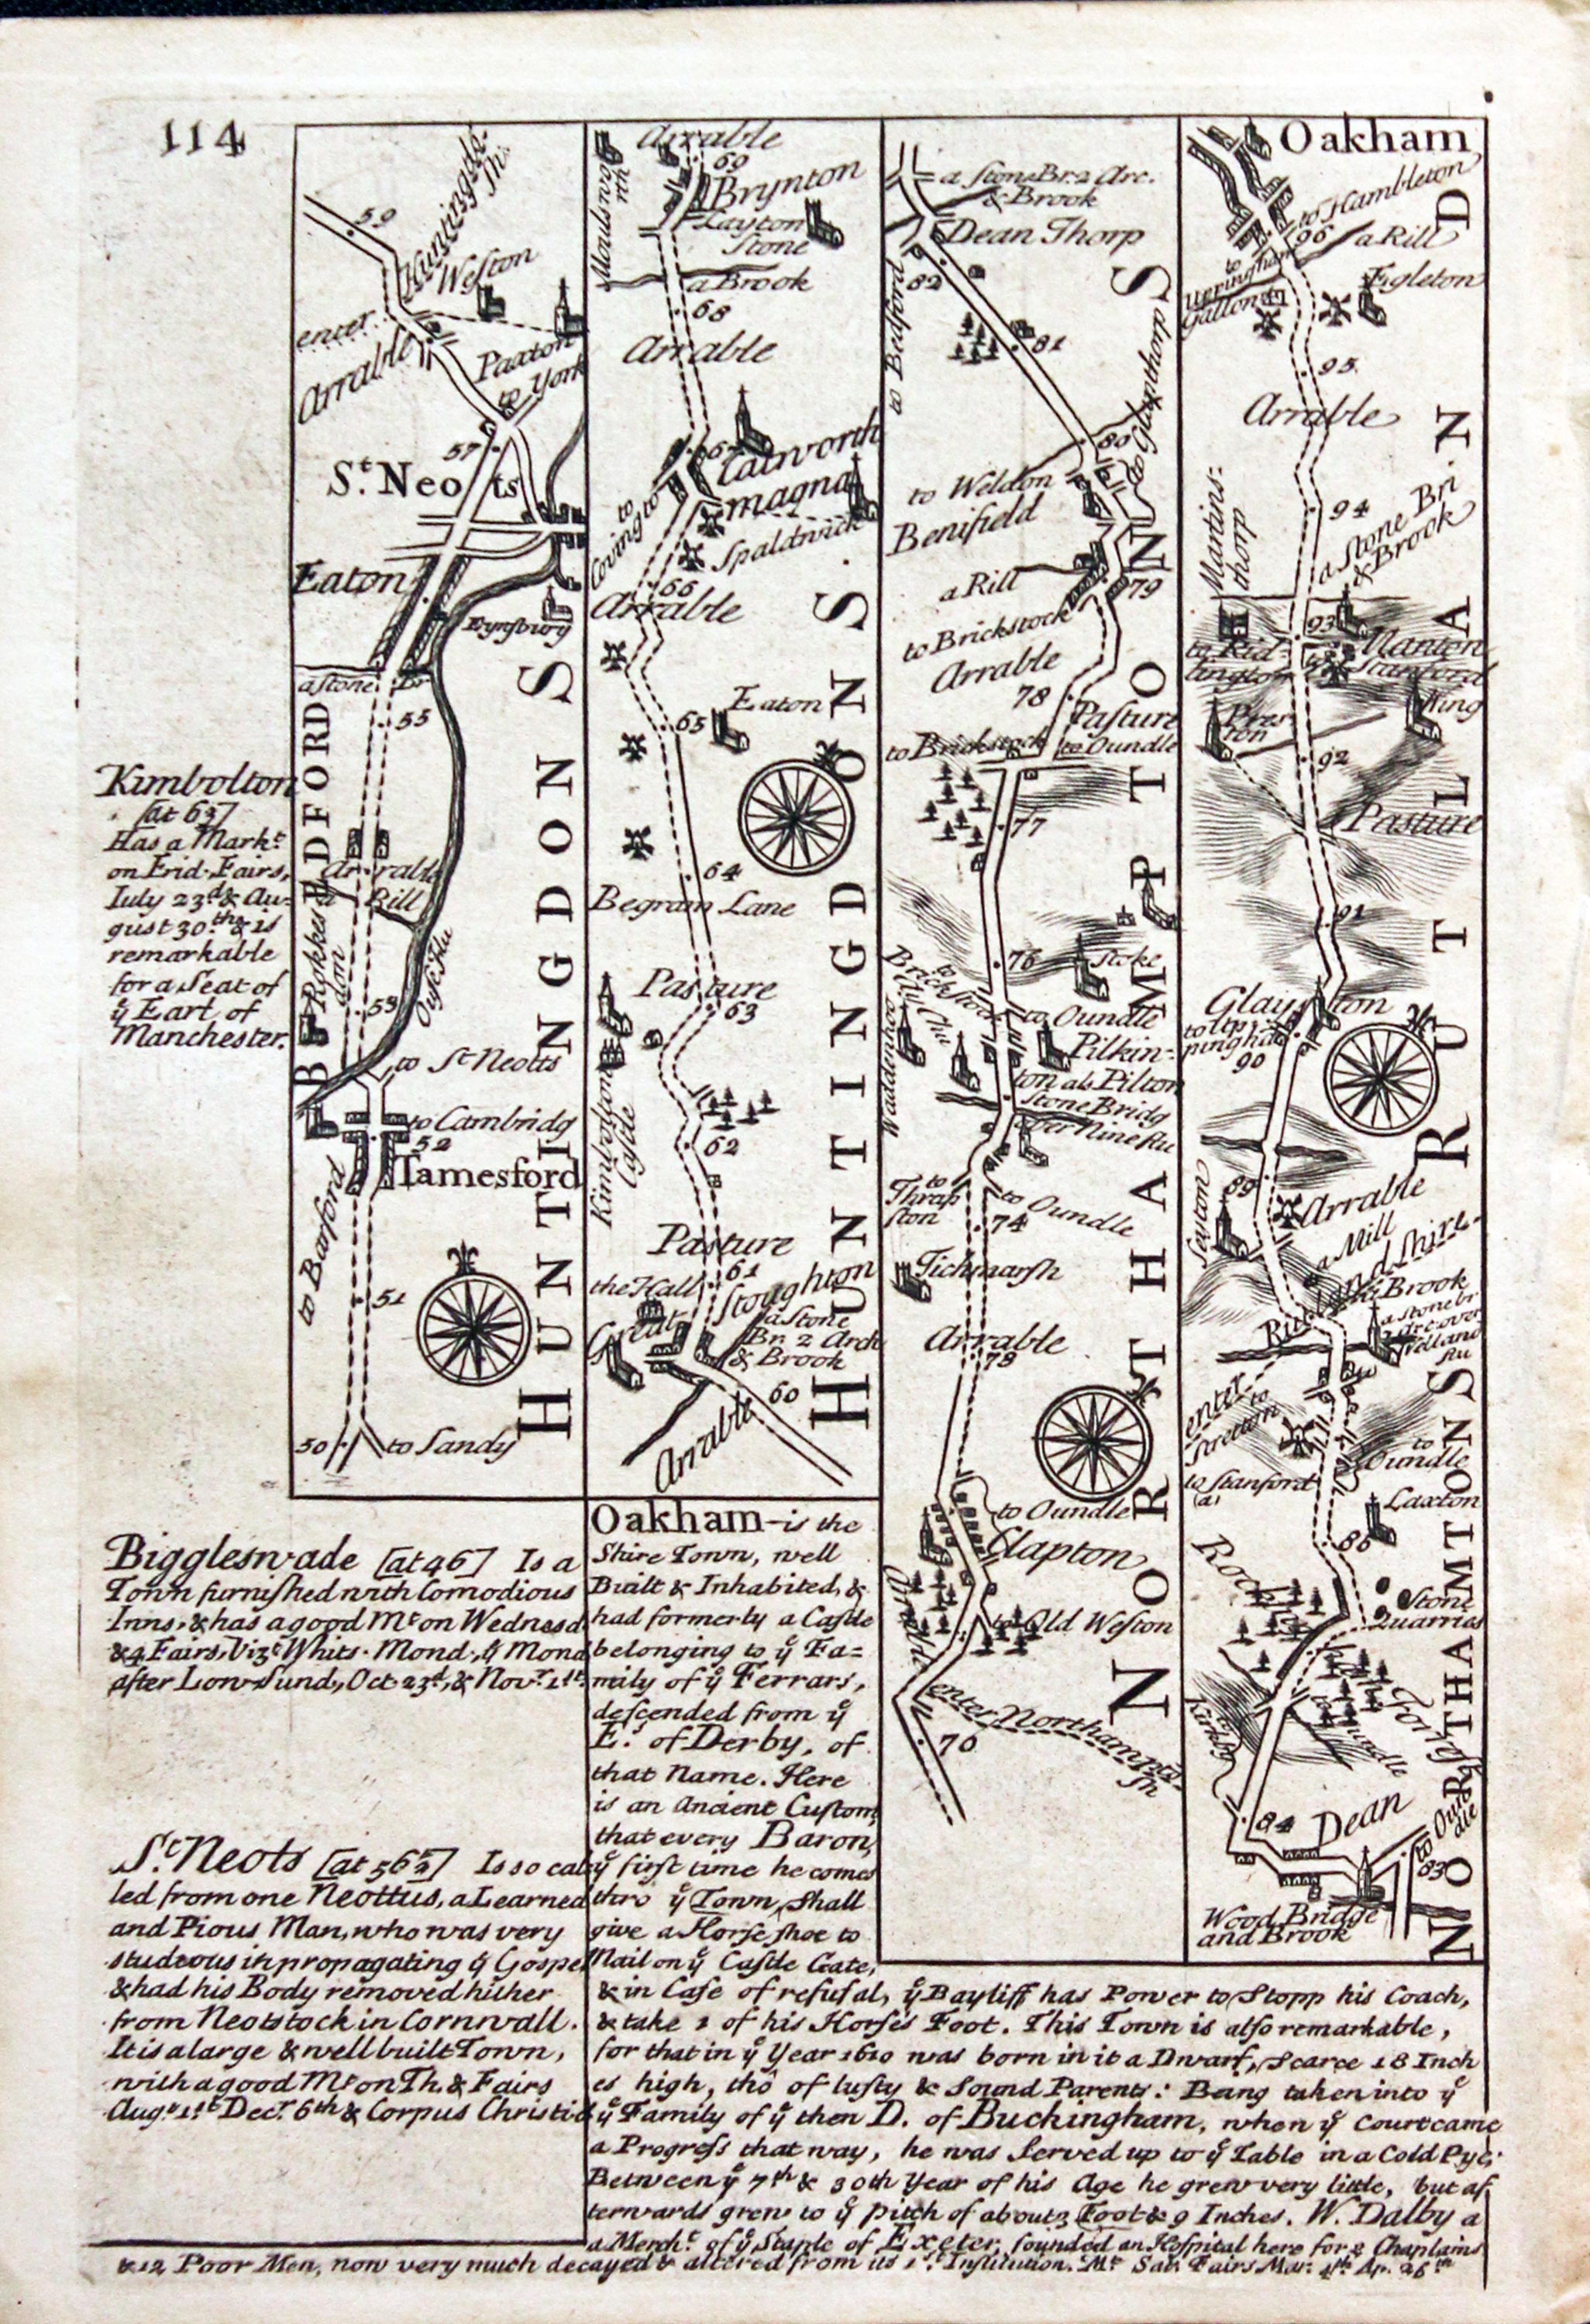 114
Huntingds.
Sh.
59
Weston
enter
Arrable
Paxton
to York
57
St. Neots
Eaton
Eynsbury
a stone Br
55
BEDFORD
Arrable
a Rill
Rokesdom
53
Ouse Flu
to St. Neotts
to Cambridg
52
Tamesford
to Barford
51
50
to Sandy
HUNTINGDONS
Kimbolton
[at 63]
Has a Markt.
on Frid. Fairs,
July 23d. & Au-
gust 30th. & is
remarkable
for a Seat of
ye Earl of
Manchester.
Arrable
69
Brynton
Layton
Stone
Moulsworth
a Brook
68
Arrable
67
Catworth
magna
to
Covington
Spaldwick
66
Arrable
65
Eaton
64
Begram Lane
Pasture
63
Kimbolton
Castle
62
Pasture
61
the Hall
Great
Stoughton
a Stone
Br. 2 Arch
& Brook
60
Arrable
HUNTINGDONS
a stone Br. 2 Arc.
& Brook
Dean Thorp
82
to Bedford
81
to Glapthorp
80
to Weldon
Benifield
a Rill
79
to Brickstock
Arrable
78
Pasture
to Brickstock
to Oundle
77
76
Stoke
to
Brickstock
to Oundle
Pilkin-
ton als Pilton
Waddenhoo
Stone Bridg
over Nine flu
to
Thrap
ston
to Oundle
74
Tichmarsh
Arrable
73
to Oundle
Clapton
Arrable
to Old Weston
enter Northampt.
Sh
70
NORTHAMPTONS
Oakham
to Hambleton
96
a Rill
to
Uppingham
Gallows
Egleton
95
Arrable
94
Martins-
thorp
a Stone Bri
& Brook
93
Manton
to Rid-
lington
to
Stanford
Pres-
ton
Wing
92
Pasture
91
Glayston
to Up-
pingham
90
89
Seyton
Arrable
a Mill
Rutlandshire
& Brook
a stone br
Arc over
Welland
flu
enter
to
Stretton
to
Oundle
to Stanford
Laxton
86
Rockingham
Stone
Quarries
Forest
to Kirkby
to Oundle
84
Dean
to Oundle
83
Wood Bridge
and Brook
RUTLAND
NORTHAMTONS
Biggleswade [at 46] Is a
Town furnished with Comodious
Inns, & has a good Mt. on Wednesd.
& 4 Fairs, Vizt. Whits. Mond., ye Mond
after Low-Sund., Oct. 23d, & Novr. 1st.
St. Neots [at 56 1/2] Is so cal
led from one Neottus, a Learned
and Pious Man, who was very
studeous in propagating ye Gospel
& had his Body removed hither
from Neotstock in Cornwall.
It is a large & well built Town,
with a good Mt. on Th. & Fairs
Augt. 1st. Decr. 6th & Corpus Christi d
Oakham is the
Shire Town, well
Built & Inhabited, &
had formerly a Castle
belonging to ye Fa=
mily of ye Ferrars,
descended from ye
E.s of Derby, of
that Name. Here
is an Ancient Custom,
that every Baron,
ye first time he comes
thro ye Town, Shall
give a Horse shoe to
Nail on ye Castle Gate,
& in Case of refusal, ye Bayliff has Power to Stopp his Coach,
& take 1 of his Horse's Foot. This Town is also remarkable,
for that in ye Year 1610 was born in it a Dwarf, Scarce 18 Inch
es high, tho' of lusty & Sound Parents: Being taken into ye
Family of ye then D. of Buckingham, when ye Court came
a Progress that way, he was Served up to ye Table in a Cold Pye:
Between ye 7th & 30th Year of his Age he grew very little, but af
terwards grew to ye pitch of about 3 Foot & 9 Inches. W. Dalby a
a Mercht. of ye Staple of Exeter, founded an Hospital here for 2 Chaplains
& 12 Poor Men, now very much decayed & altered from its 1st. Institution. Mt. Sat. Fairs Mar. 4th. Ap. 26th